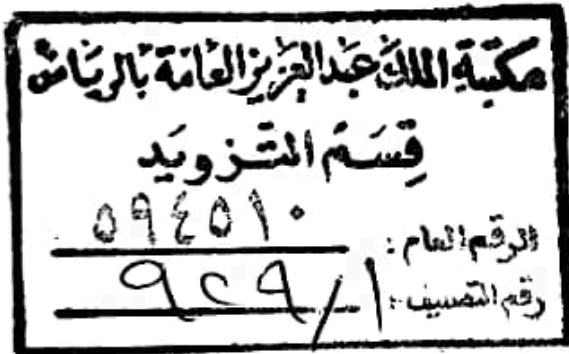 مكتبة الملك عبد العزيز العامة بالرياض
قسم التزويد
الرقم العام : ٥٩٤٥١٠
رقم التصنيف : ٩٢٩/١